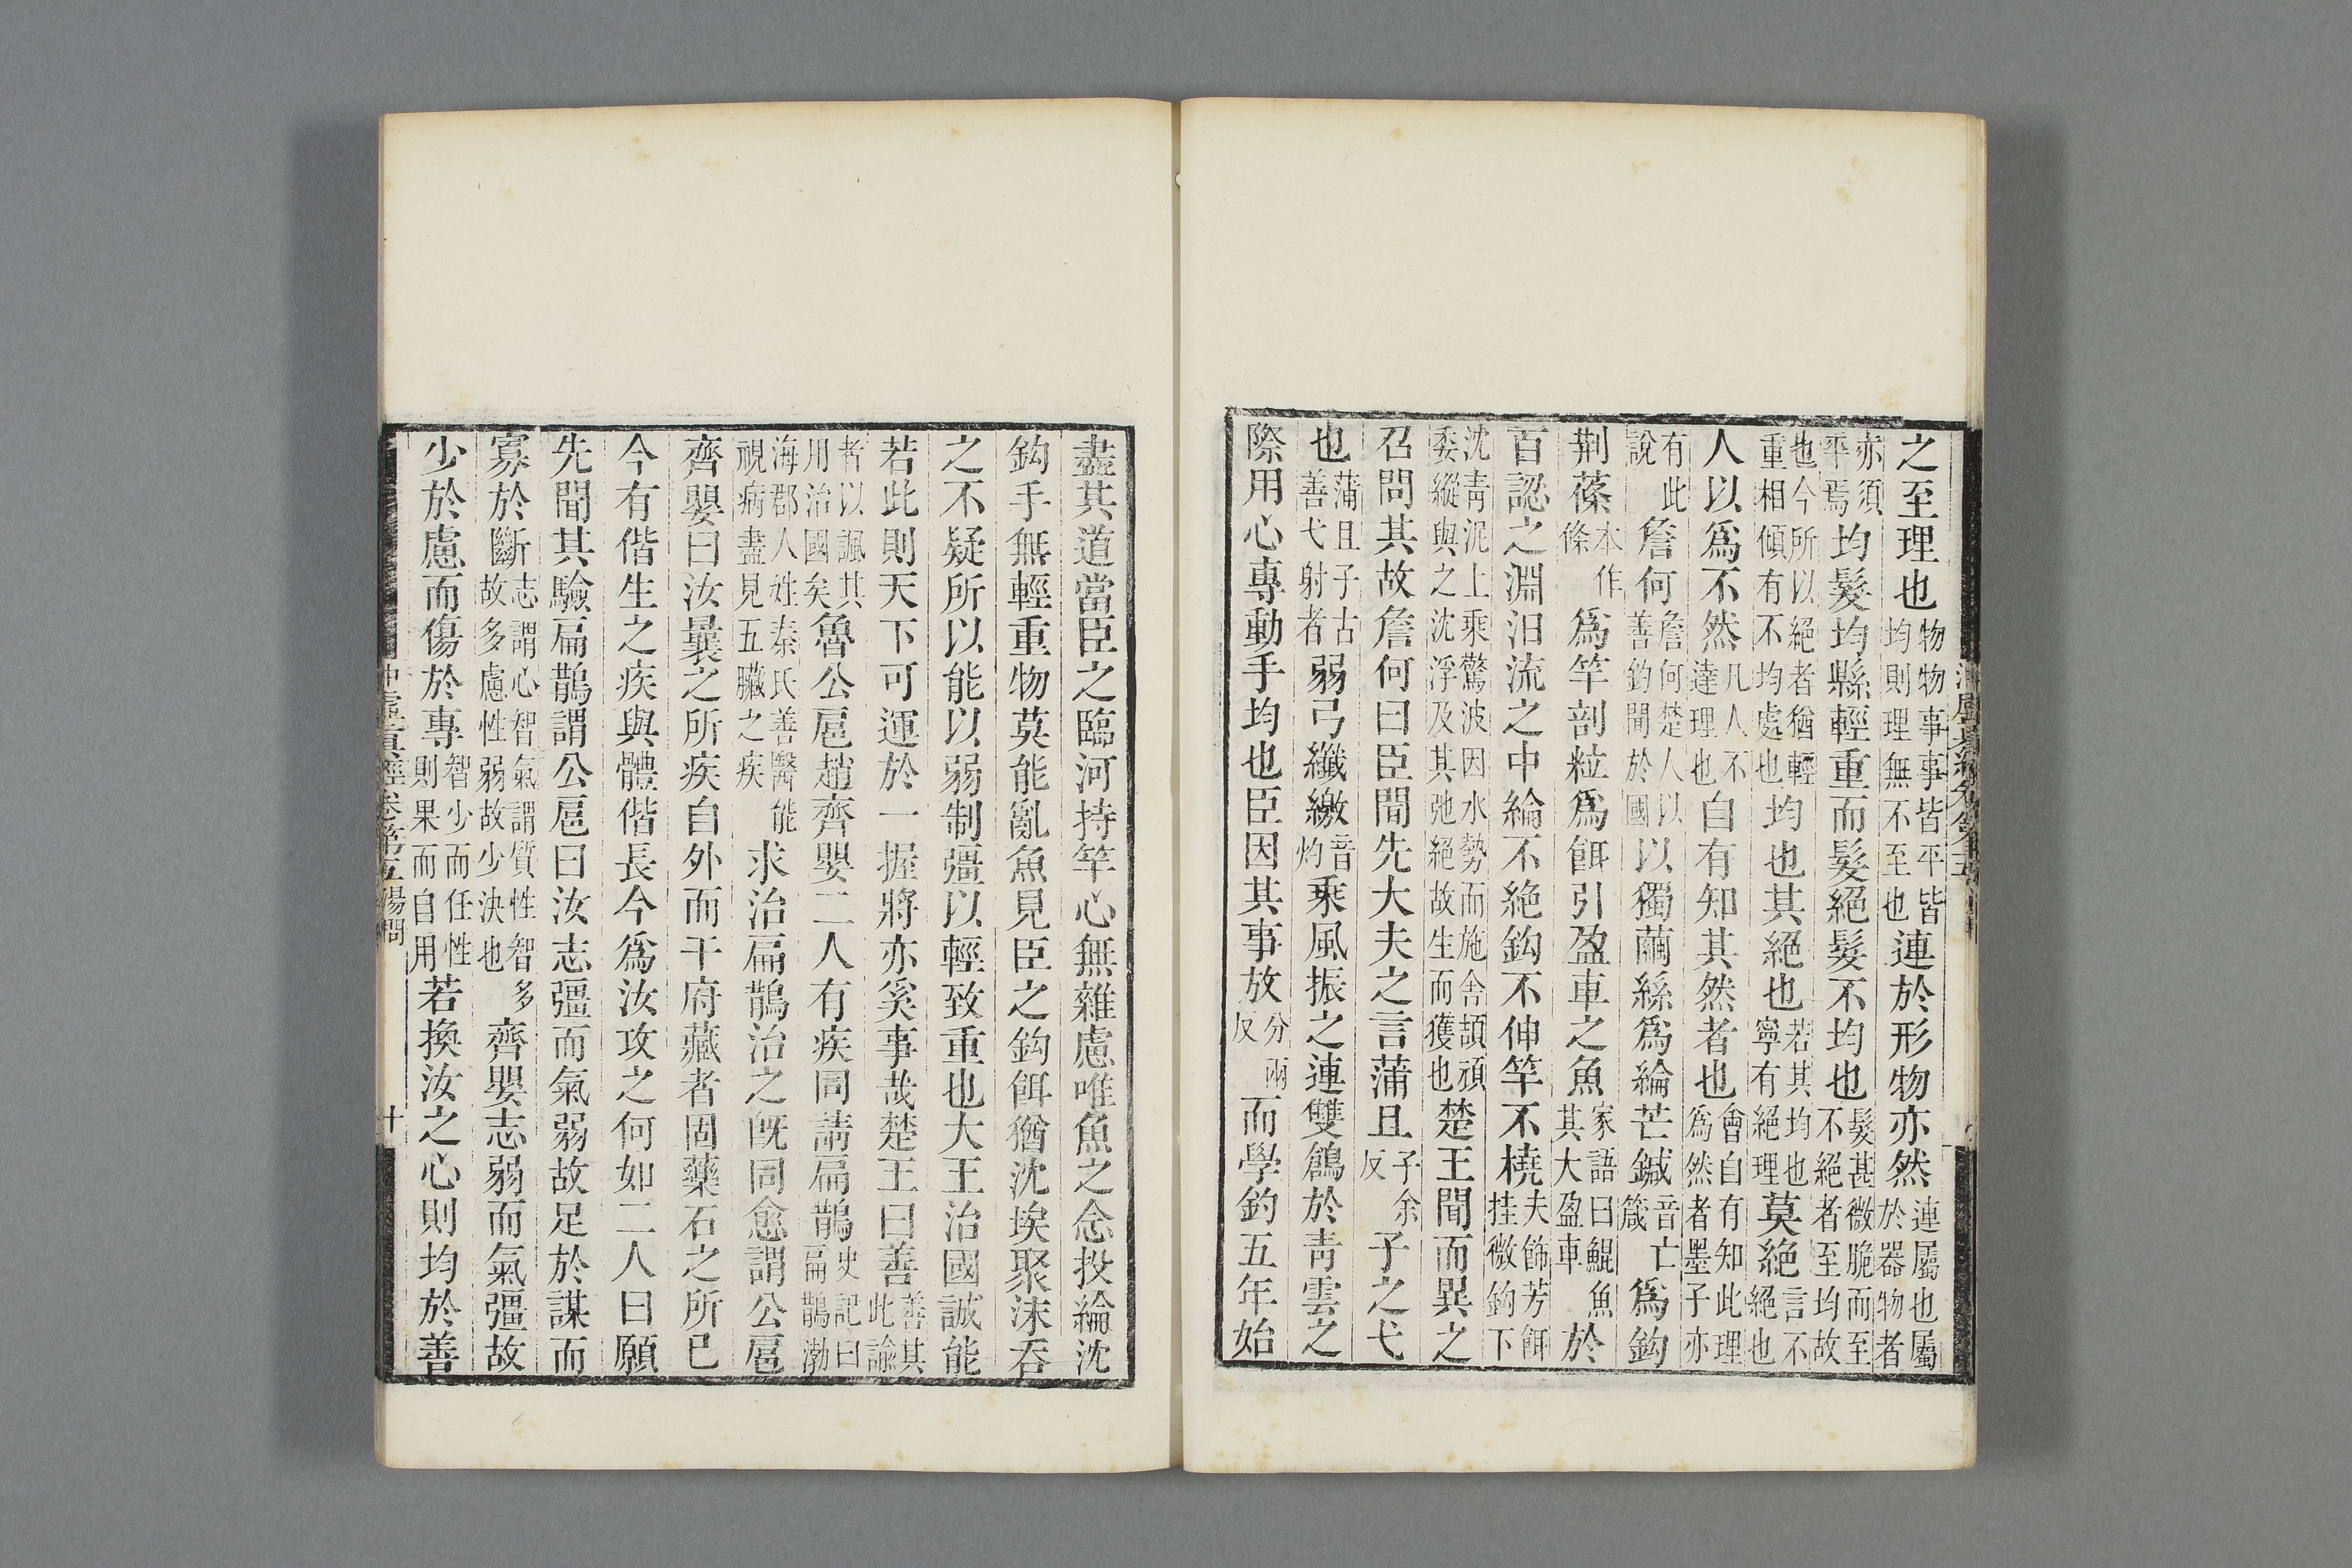 之至理也物物事事皆平皆均則理無不至也連於形物亦然連屬也屬於器物者
亦須平焉均髮均縣輕重而髮絕髮不均也髮甚微脆而至不絕者至均故
也今所以絕者猶輕重相傾有不均處也均也其絕也若其均也寧有絕理莫絕言不絕也
人以爲不然凡人不達理也自有知其然者也會自有知此理爲然者墨子亦
有此說詹何詹何楚人以善釣聞於國以獨繭絲爲綸芒鍼音亡箴爲鈎
荆蓧本作條爲竿剖粒爲餌引盈車之魚家語曰鯤魚其大盈車於
百認之淵汨流之中綸不絕鈎不伸竿不橈夫飾芳餌挂微鈎下
沈靑泥上乘驚波因水勢而施舍頡頏委縱與之沈浮及其弛絕故生而獲也楚王聞而異之
召問其故詹何曰臣聞先大夫之言蒲且子余反子之弋
也蒲且子古善弋射者弱弓纖繳音灼乘風振之連雙鶬於靑雲之
際用心專動手均也臣因其事放分兩反而學釣五年始
盡其道當臣之臨河持竿心無雜慮唯魚之念投綸沈
鈎手無輕重物莫能亂魚見臣之鈎餌猶沈埃聚沫吞
之不疑所以能以弱制彊以輕致重也大王治國誠能
若此則天下可運於一握將亦奚事哉楚王曰善善其此諭
者以諷其用治國矣魯公扈趙齊嬰二人有疾同請扁鵲史記曰扁鵲渤
海郡人姓秦氏善醫能視病盡見五臟之疾求治扁鵲治之旣同愈謂公扈
齊嬰曰汝曩之所疾自外而干府藏者固藥石之所已
今有偕生之疾與體偕長今爲汝攻之何如二人曰願
先聞其驗扁鵲謂公扈曰汝志彊而氣弱故足於謀而
寡於斷志謂心智氣謂質性智多故多慮性弱故少決也齊嬰志弱而氣彊故
少於慮而傷於專智少而任性則果而自用若換汝之心則均於善
冲虛至眞經卷第五湯問 十